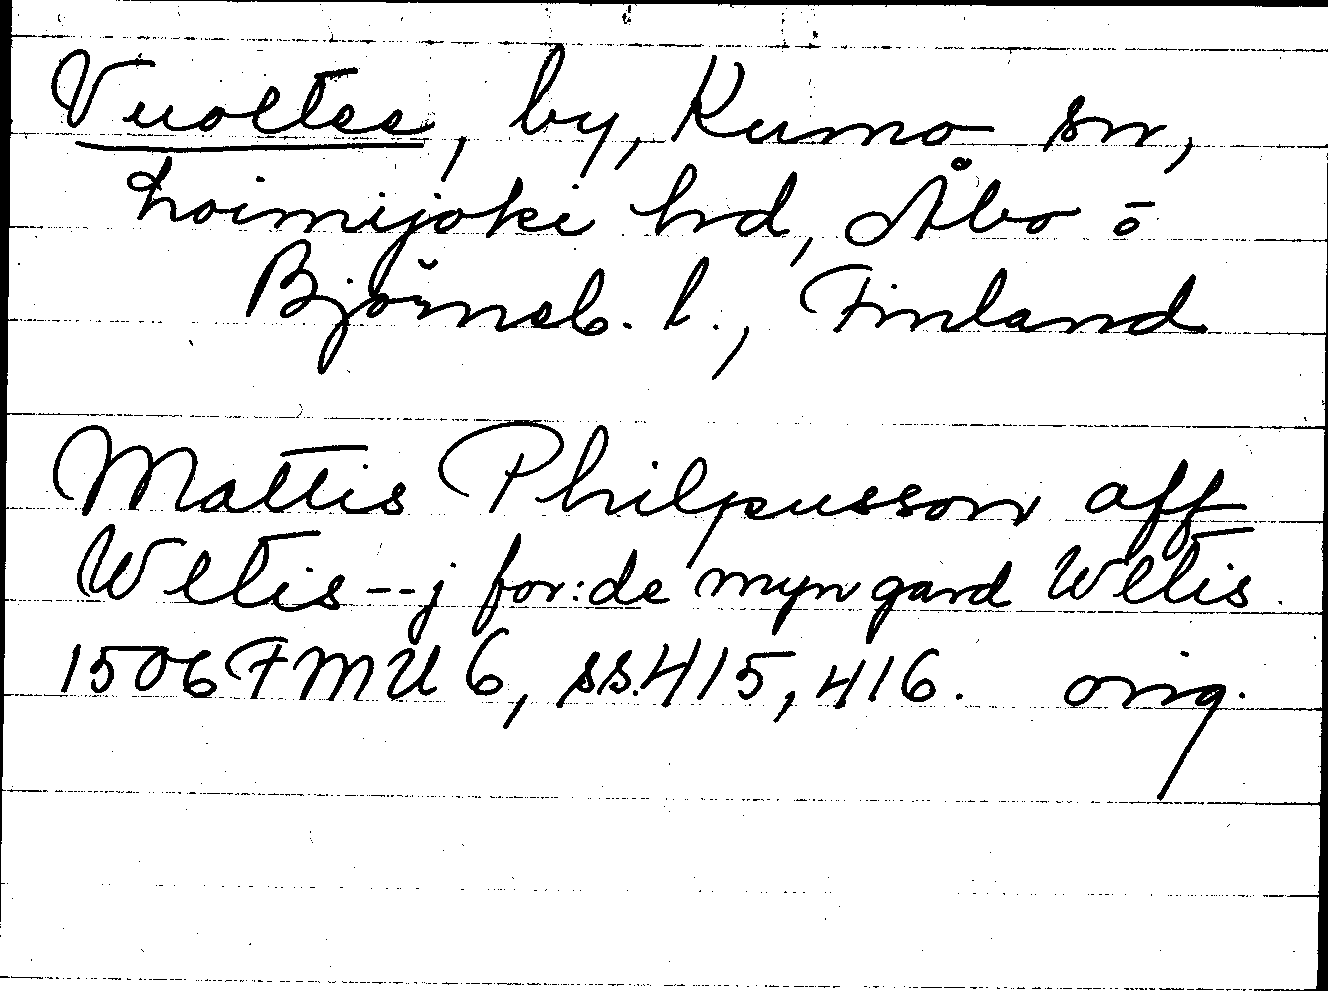 Vuoltee, by, Kumo sn,
Loimijoki hd, Åbo o
Björneb. l., Finland
Mattis Philpusson aff
Wltis--j for:de myn gard Wltis.
1506 FMU 6, ss. 415, 416. orig.